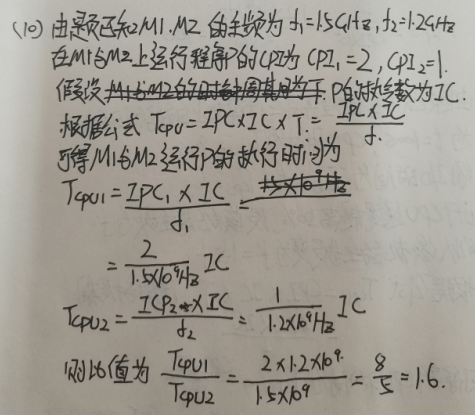 (10) 由题已知M1、M2 的主频为 f₁=1.5GHz, f₂=1.2GHz
在M1与M2上运行程序P的CPI为 CPI₁=2, CPI₂=1.
假设 P的指令数为IC.
根据公式 Tcpu = IPC×IC×T. = IPC×IC / f.
可得M1与M2运行P的执行时间为
Tcpu1 = IPC₁ × IC / f₁ =
= 2 / 1.5×10⁹Hz IC
Tcpu2 = ICP₂ × IC / f₂ = 1 / 1.2×10⁹Hz IC
则比值为 Tcpu1 / Tcpu2 = 2×1.2×10⁹ / 1.5×10⁹ = 8/5 = 1.6.